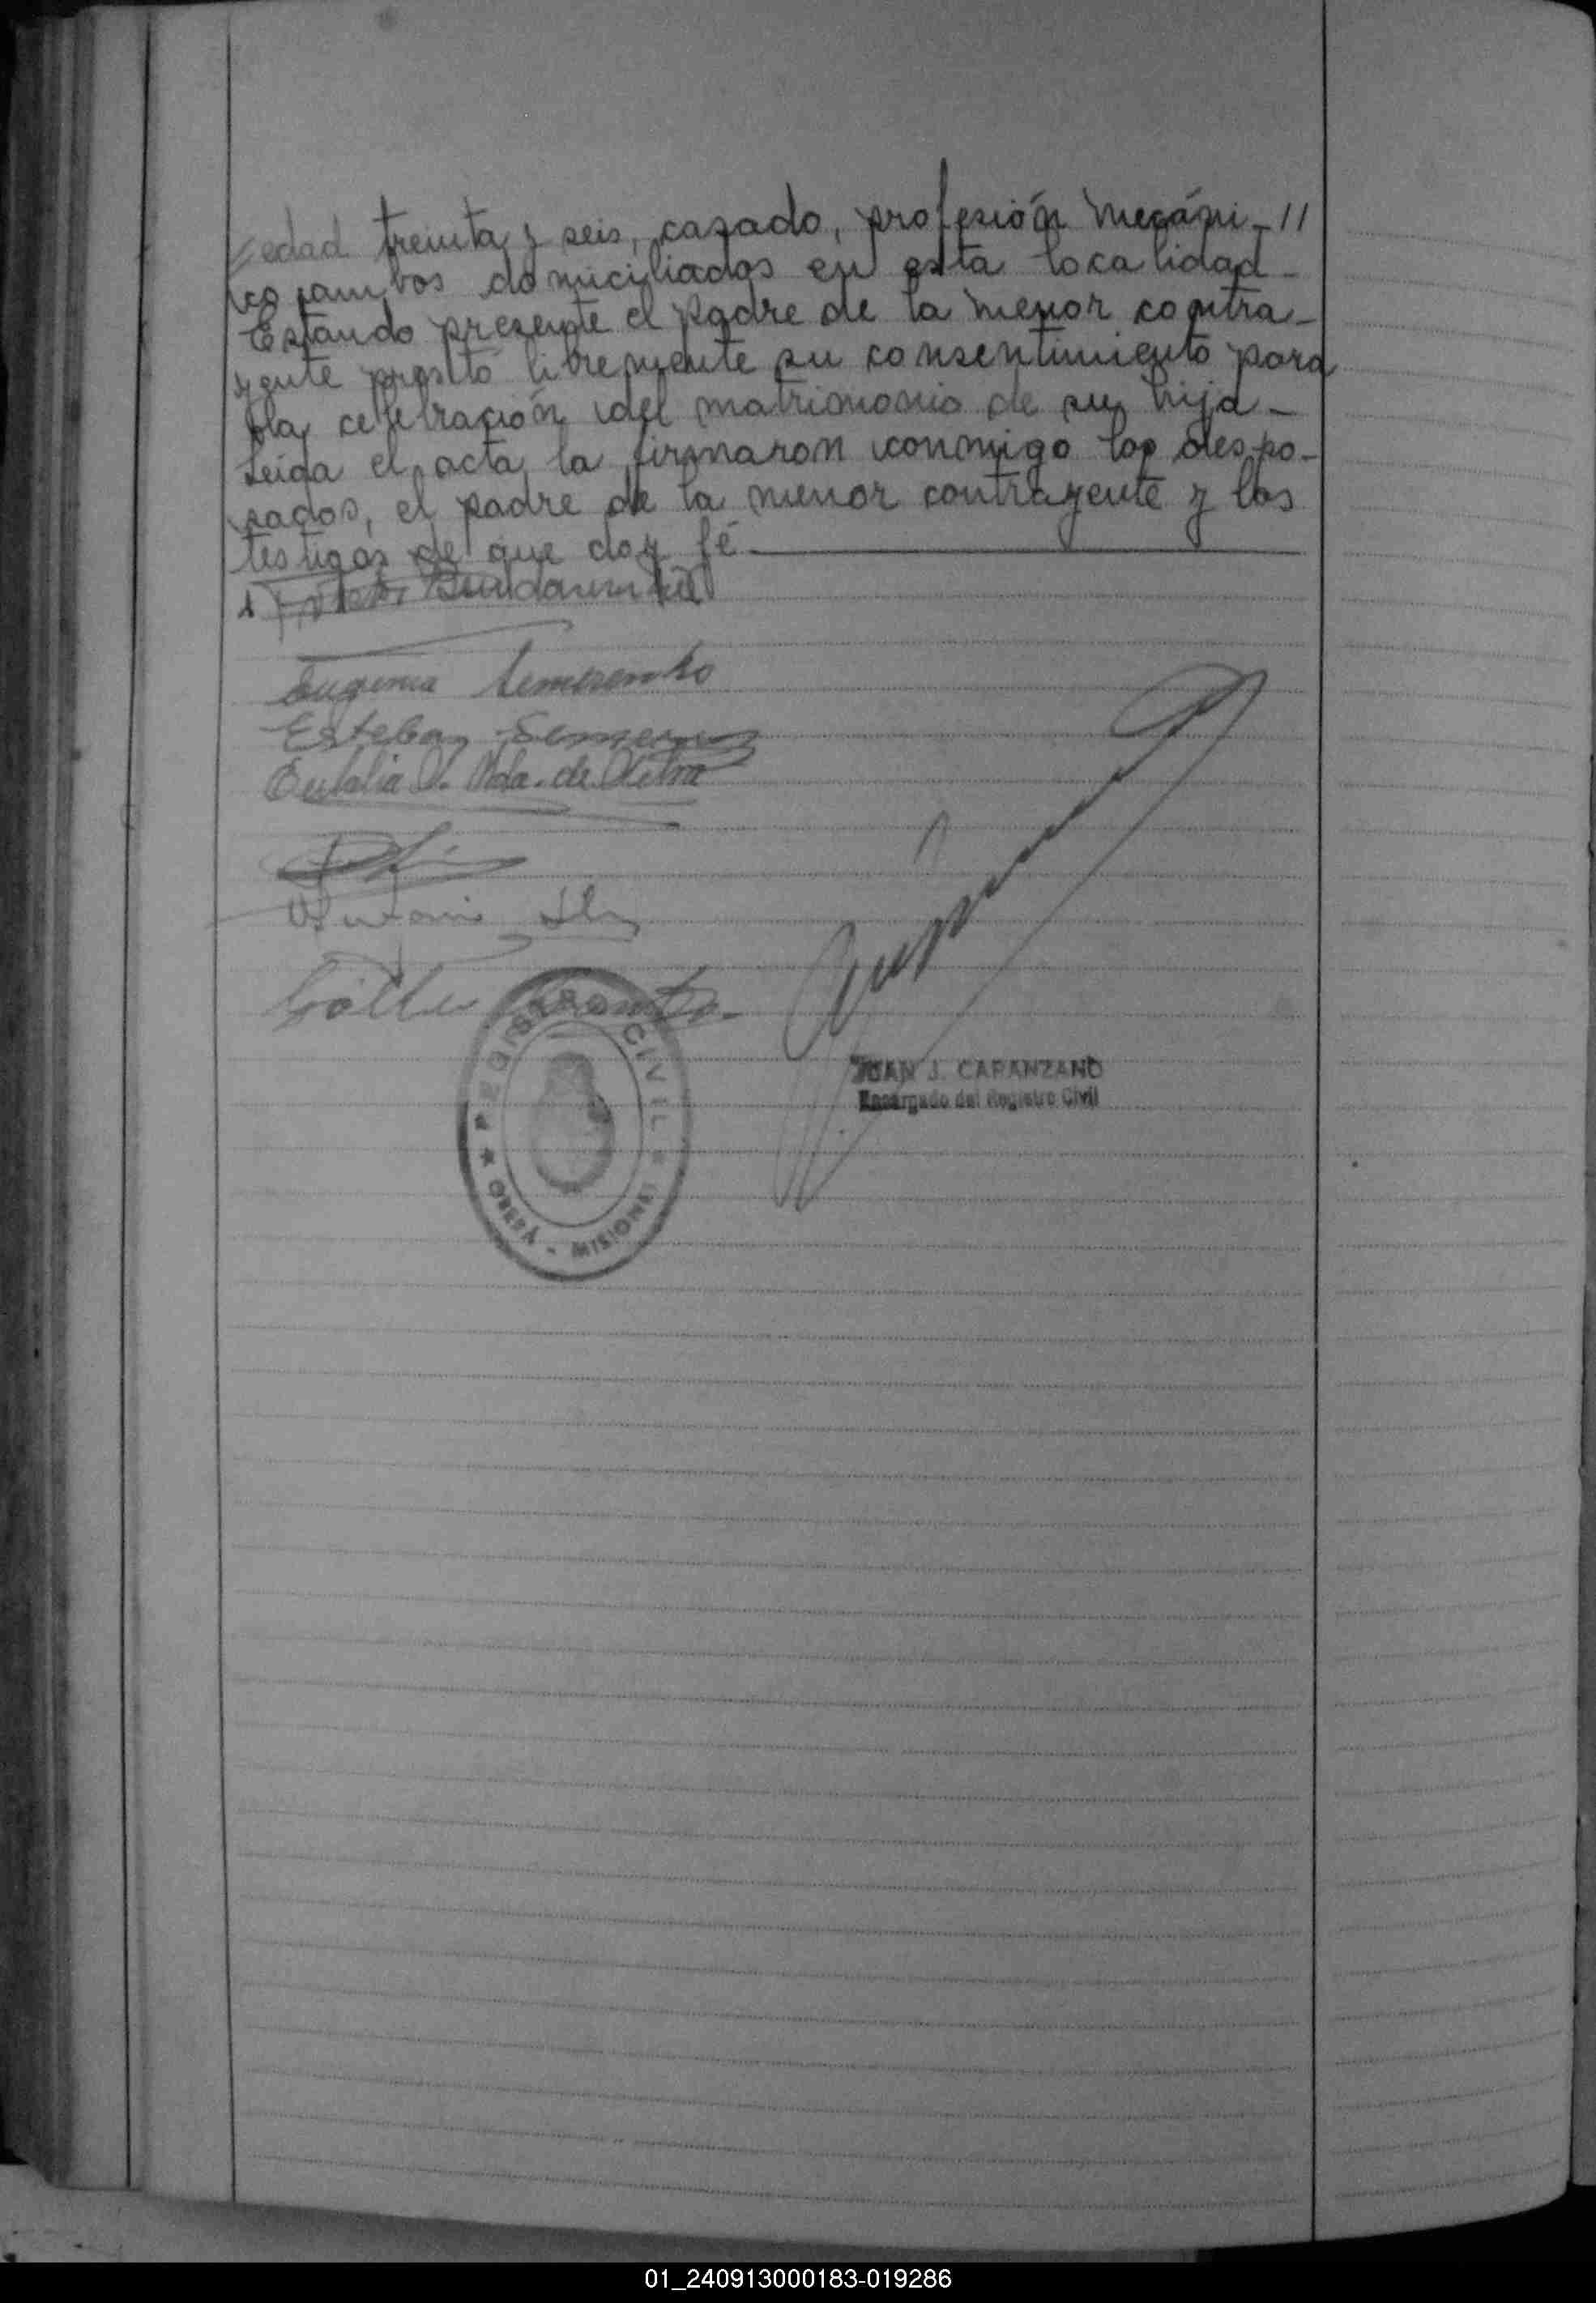 edad treinta y seis, casado, profesión mecáni-//
co ambos domiciliados en esta localidad-
Estando presente el padre de la menor contra-
yente prestó libremente su consentimiento para
la celebración del matrimonio de su hija-
Leida el acta la firmaron conmigo los despo-
sados, el padre de la menor contrayente y los
testigos de que doy fé
Eugenia Semerenko
Esteban
Eulalia V. Vda. de
Antonio
REGISTRO CIVIL
OBERÁ - MISIONES
JUAN J. CAPANZANO
Encargado del Registro Civil
01_240913000183-019286